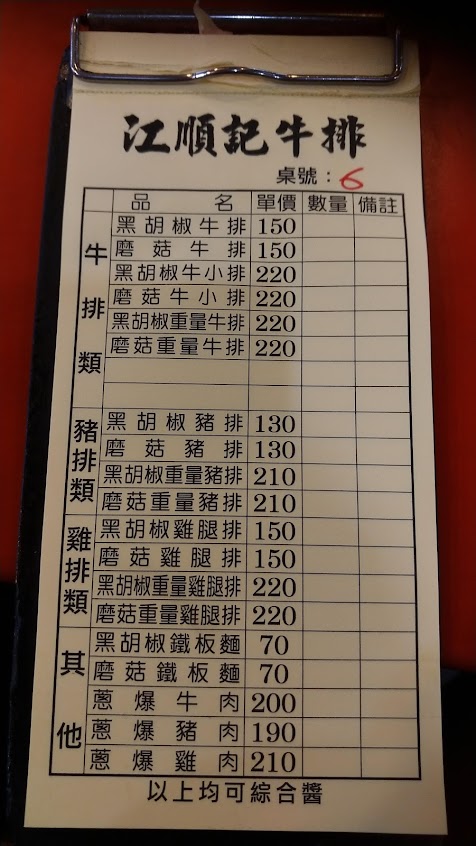 江順記牛排
桌號：6
品名 單價 數量 備註
牛排類
黑胡椒牛排 150
磨菇牛排 150
黑胡椒牛小排 220
磨菇牛小排 220
黑胡椒重量牛排 220
磨菇重量牛排 220
豬排類
黑胡椒豬排 130
磨菇豬排 130
黑胡椒重量豬排 210
磨菇重量豬排 210
雞排類
黑胡椒雞腿排 150
磨菇雞腿排 150
黑胡椒重量雞腿排 220
磨菇重量雞腿排 220
其他
黑胡椒鐵板麵 70
磨菇鐵板麵 70
蔥爆牛肉 200
蔥爆豬肉 190
蔥爆雞肉 210
以上均可綜合醬